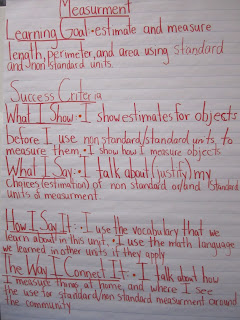 Measurment
Learning Goal: estimate and measure
length, perimeter, and area using standard
and non standard units.
Success Criteria
What I Show: • I show estimates for objects
before I use non standard/standard units to
measure them. • I show how I measure objects.
What I Say: • I talk about (justify) my
choices (estimation) of non standard or/and standard
units of measurement.
How I Say It: • I use the vocabulary that we
learn about in this unit. • I use the math language
we learned in other units if they apply
The Way I Connect It: • I talk about how
I measure things at home, and where I see
the use for standard/non standard measurment around
the community.